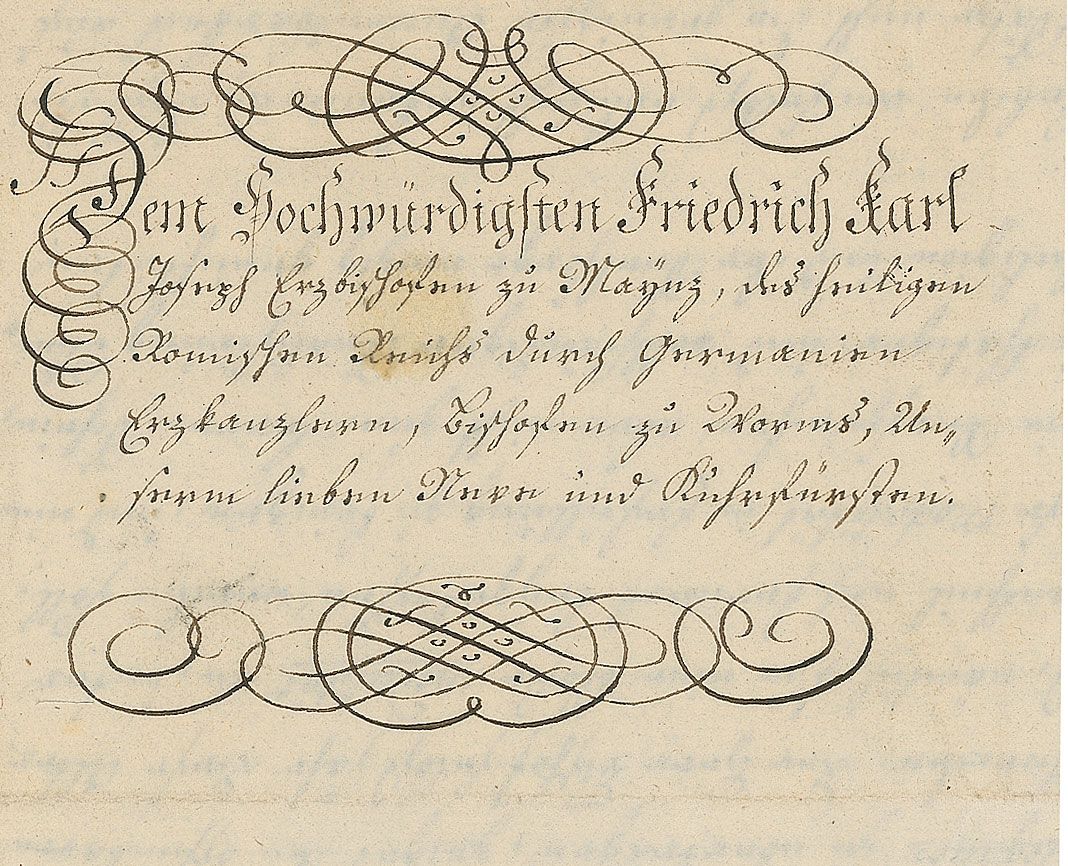 Dem Hochwürdigsten Friedrich Karl
Joseph Erzbischofen zu Maÿnz, des heiligen
Romischen Reichs durch Germanien
Erzkanzlern, Bischofen zu Worms, Un„
serm lieben Neve und Kuhrfürsten.